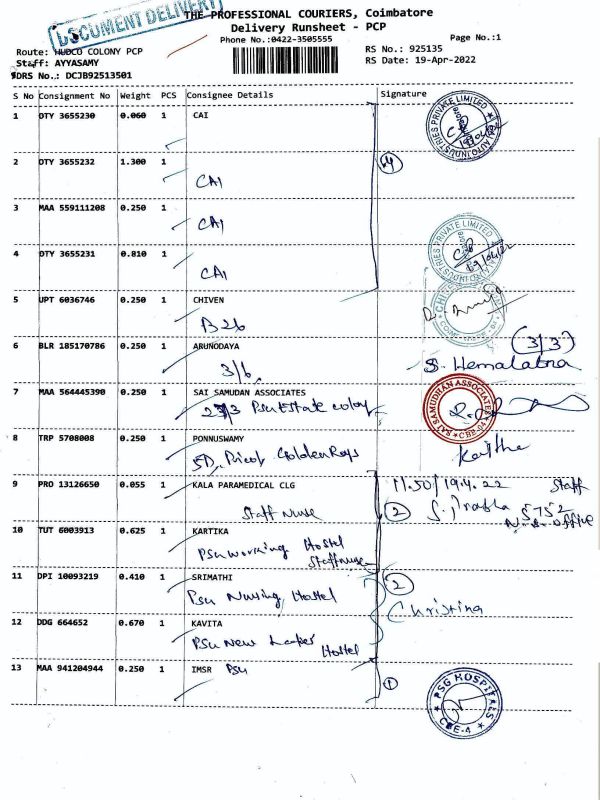 DOCUMENT DELIVERY
THE PROFESSIONAL COURIERS, Coimbatore
Delivery Runsheet - PCP
Phone No.:0422-3505555
Page No.:1
Route: HUDCO COLONY PCP
RS No.: 925135
Staff: AYYASAMY
RS Date: 19-Apr-2022
DRS No.: DCJB92513501
S No Consignment No Weight PCS Consignee Details Signature
1 DTY 3655230 0.060 1 CAI
2 DTY 3655232 1.300 1
CAI
4
3 MAA 559111208 0.250 1
CAI
4 DTY 3655231 0.810 1
CAI
5 UPT 6036746 0.250 1 CHIVEN
B26
6 BLR 185170786 0.250 1 ARUNODAYA
3/6
(3/3)
S. Hemalatha
7 MAA 564445390 0.250 1 SAI SAMUDAN ASSOCIATES
Psu Estate colony
SAI SAMUDHAN ASSOCIATES
CBE-04
8 TRP 5708008 0.250 1 PONNUSWAMY
5D, Pricol Golden Rays
9 PRO 13126650 0.055 1 KALA PARAMEDICAL CLG
11.50/19.4.22 Staff
Staff Nurse
2
5752
N.S. office
10 TUT 6003913 0.625 1 KARTIKA
Psu working Hostel
Staff nurse
11 DPI 10093219 0.410 1 SRIMATHI
2
Psu Nursing Hostel
Christina
12 DDG 664652 0.670 1 KAVITA
Psu New Ladies Hostel
13 MAA 941204944 0.250 1 IMSR Psu
1
PSG HOSPITALS
CBE-4